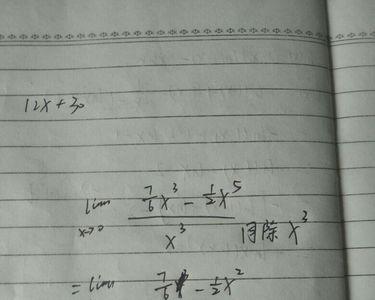 12x+30
lim 7/6 x³ - 1/2 x⁵
x→0 x³ 同除 x³
= lim 7/6 - 1/2 x²